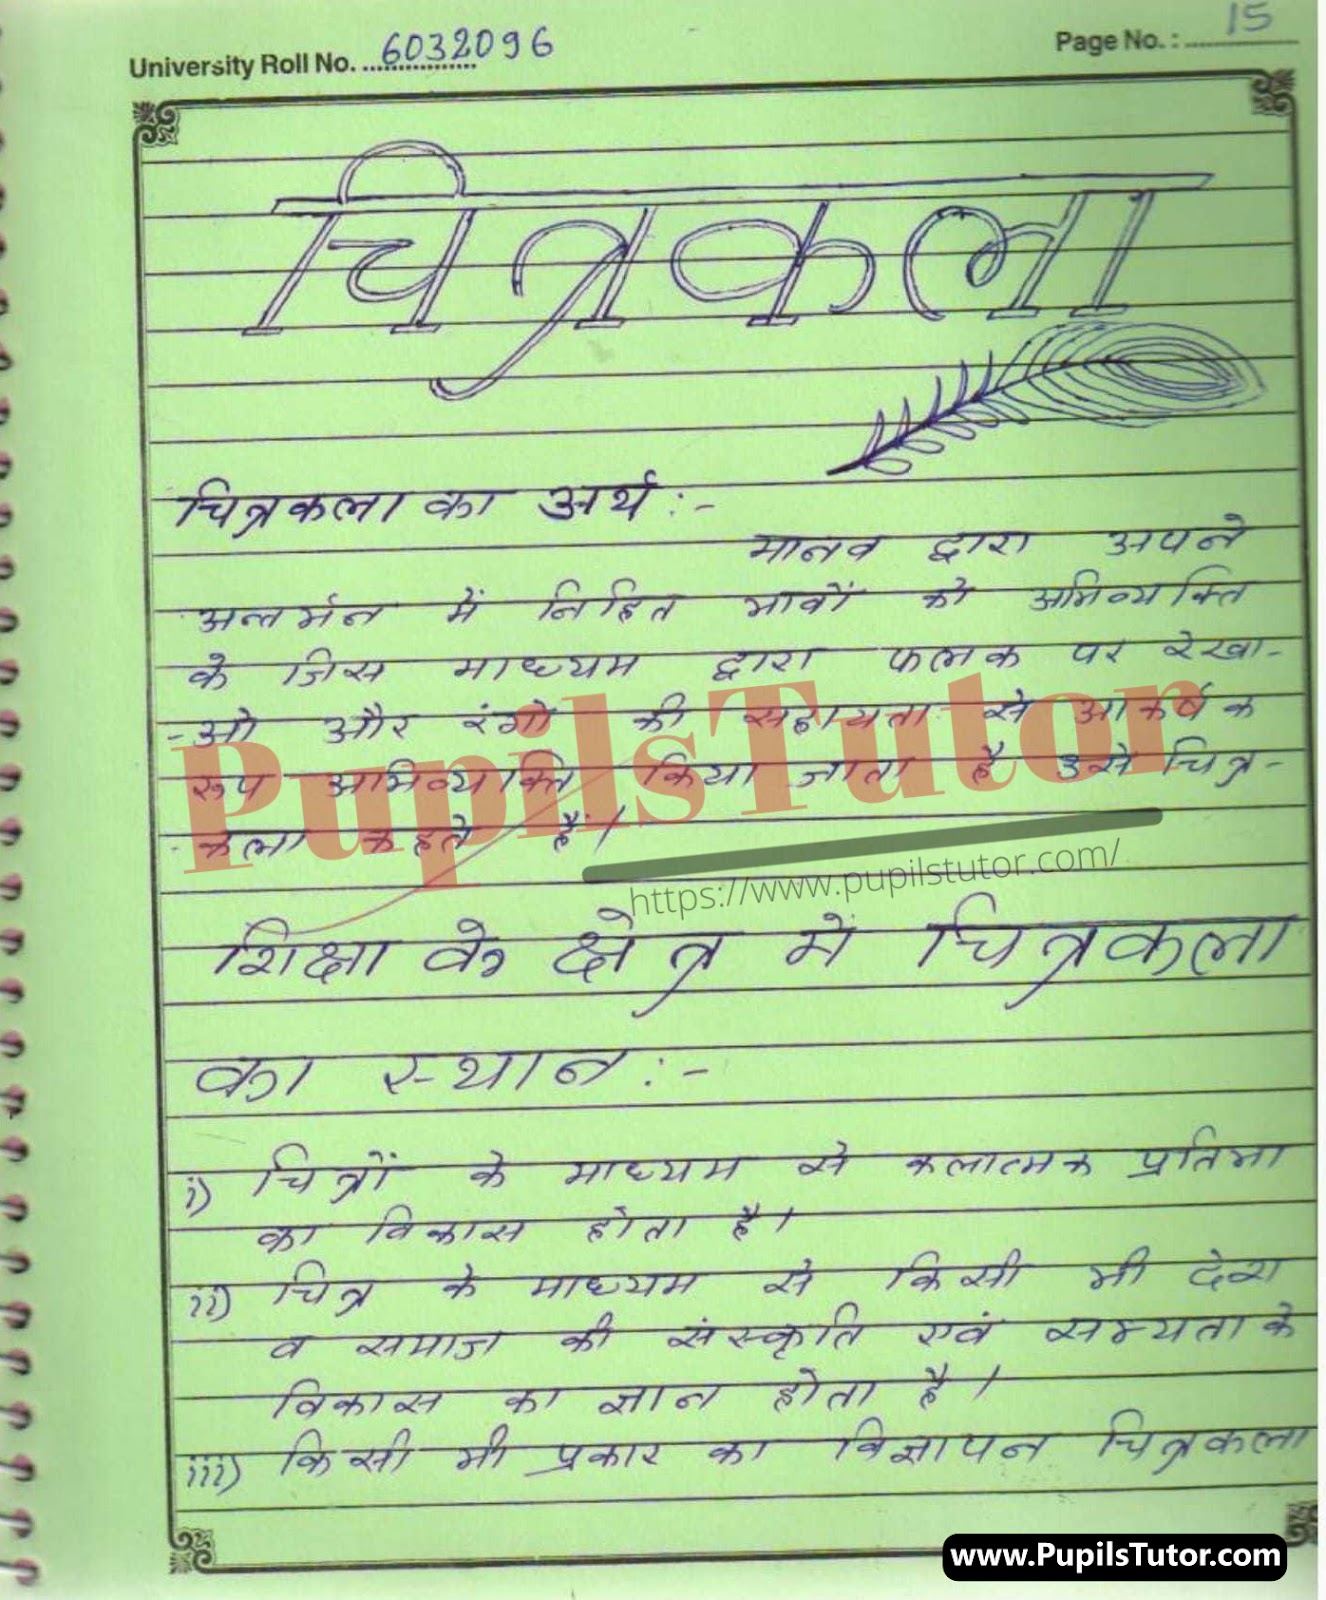 University Roll No. 6032096
Page No. : 15
चित्रकला
चित्रकला का अर्थ :-
मानव द्वारा अपने
अन्तर्मन में निहित भावों को अभिव्यक्ति
के जिस माध्यम द्वारा फलक पर रेखा-
-ओ और रंगो की सहायता से आकर्षक
रूप अभिव्यक्ति किया जाता है उसे चित्र-
-कला कहते हैं।
PupilsTutor
https://www.pupilstutor.com/
शिक्षा के क्षेत्र में चित्रकला
का स्थान :-
i) चित्रों के माध्यम से कलात्मक प्रतिभा
का विकास होता है।
ii) चित्र के माध्यम से किसी भी देश
व समाज की संस्कृति एवं सभ्यता के
विकास का ज्ञान होता है।
iii) किसी भी प्रकार का विज्ञापन चित्रकला
www.PupilsTutor.com